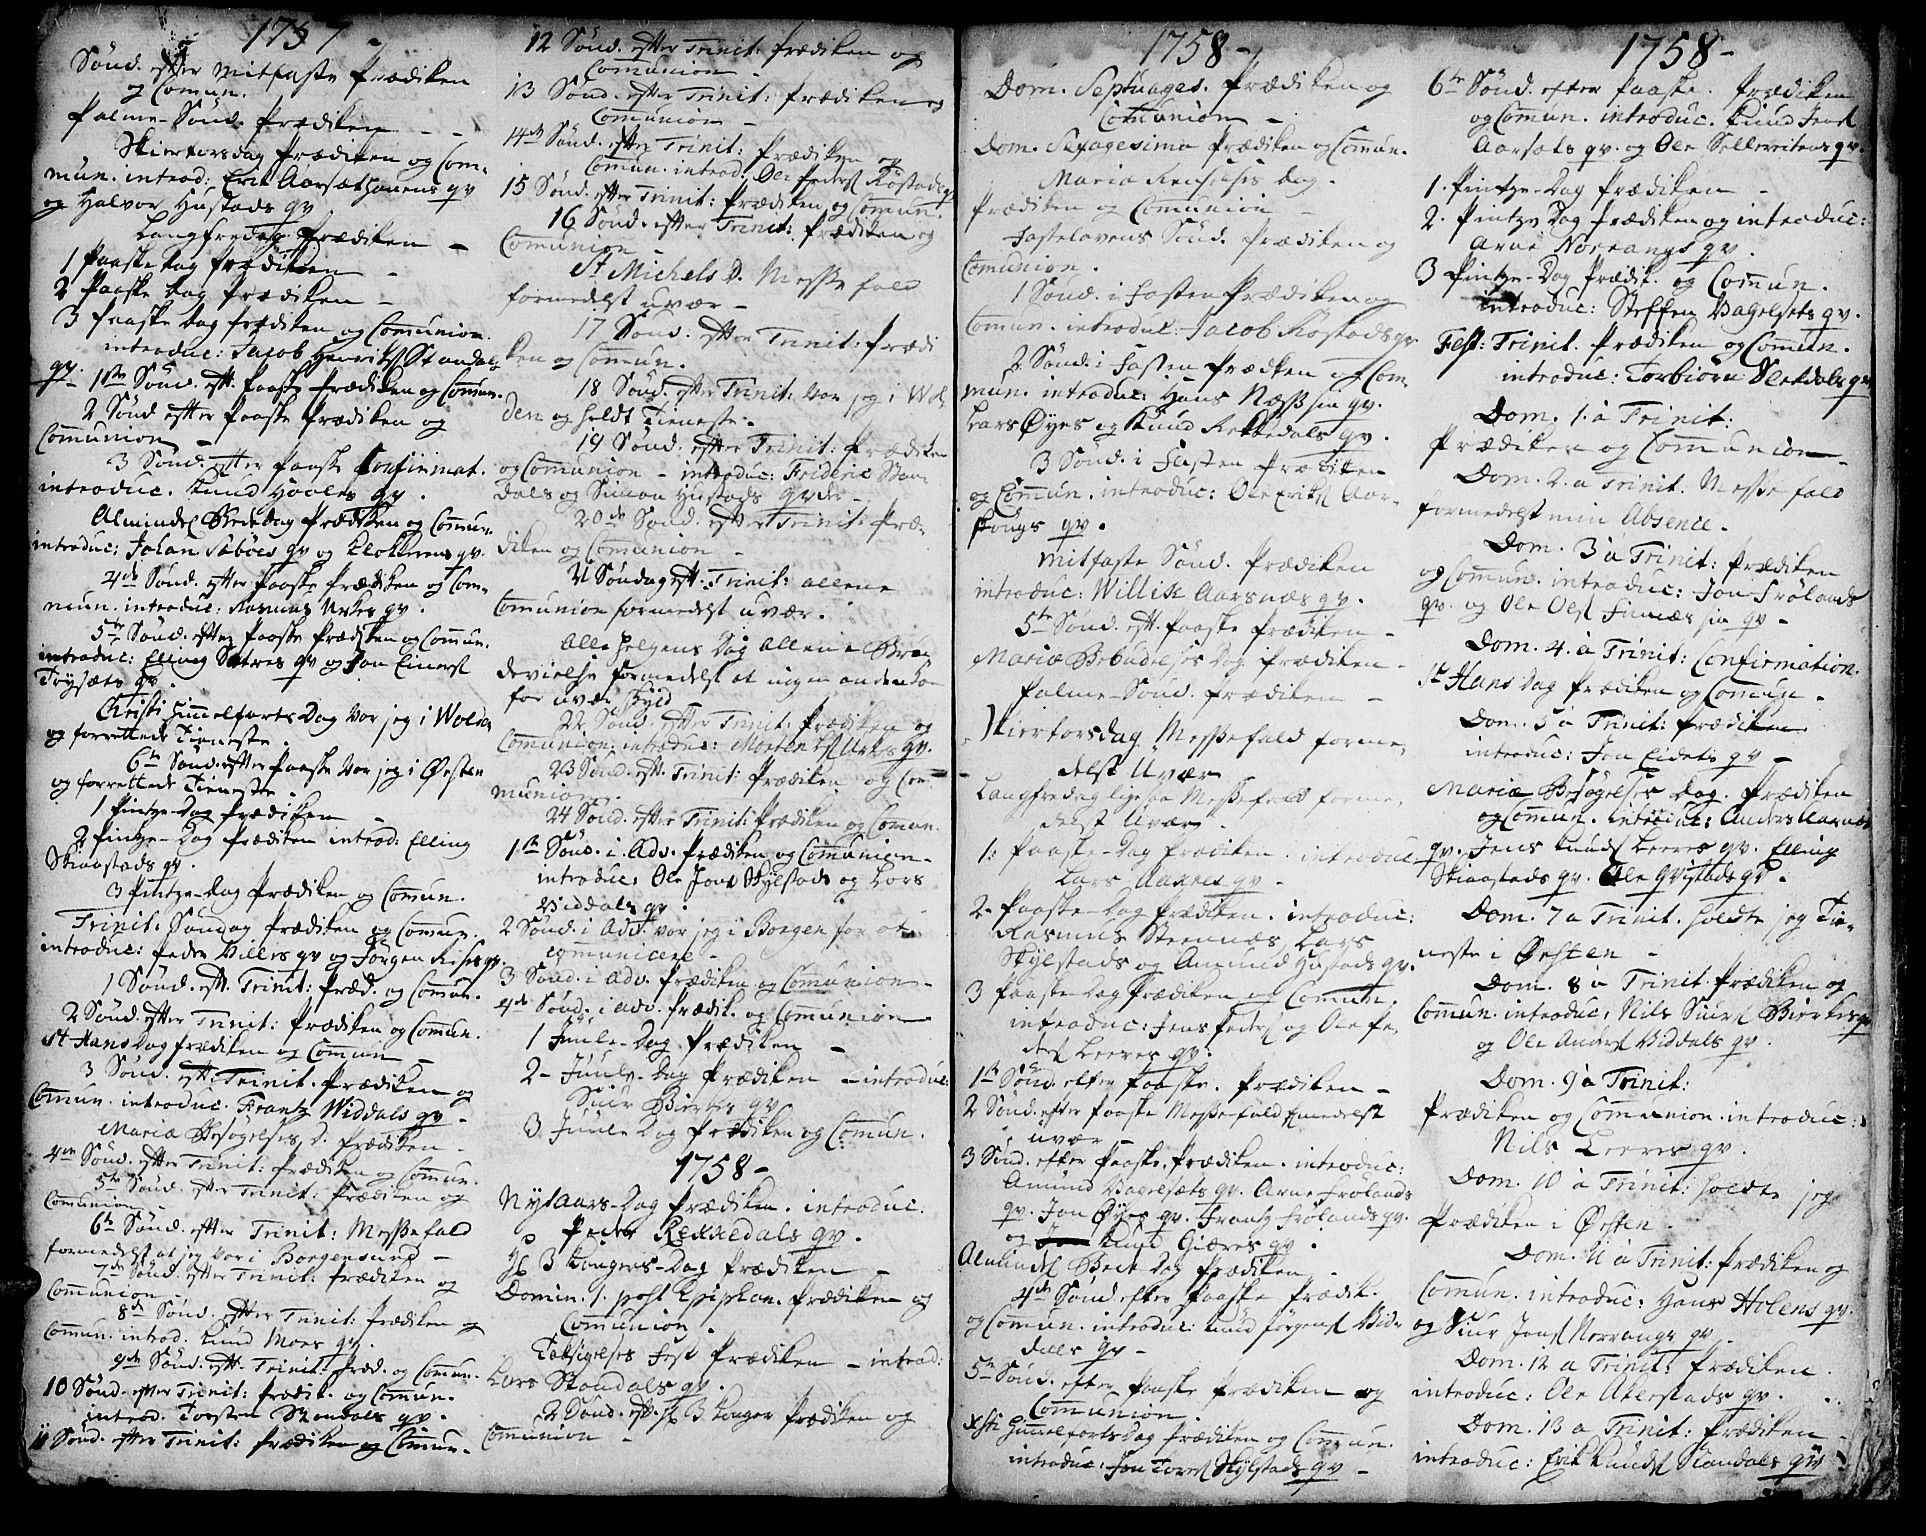 1757 -
Sønd. efter Mitfaste Prædiken
og Comun.
Palme-Sønd. Prædiken - -
Skiertorsdag Prædiken og Com-
mun. introd: Erik Aarsæt qv
og Halvor Hustads qv
Langfredag Prædiken -
1 Paaske Dag Prædiken -
2 Paaske Dag Prædiken -
3 Paaske Dag Prædiken og Comunion.
introduc: Jacob Henrichs Standals
qv. 1ste Sønd. eft. Paaske Prædiken og Comun.
2 Sønd efter Paaske Prædiken og
Communion -
3 Sønd. efter Paaske Confirmat.
introduc. Knud Hovlis qv.
Almindel Bededag Prædiken og Comun.
introduc: Johan Sæbøes qv og Klokkerens qv.
4de Sønd. efter Paaske Prædiken og Com-
mun. introduc: Rasmus Urkes qv.
5te Sønd. efter Paaske Prædiken og Comun.
introduc: Elling Sætres qv og Jon Einers
Tøysæts qv.
Christi Himmelfarts Dag Var jeg i Wolden
og forrettede Tieneste.
6te Sønd. efter Paaske Var jeg i Ørsten
og forrettede Tieneste -
1 Pintze-Dag Prædiken -
2 Pintze-Dag Prædiken introd: Elling
Skaastads qv.
3 Pintze-Dag Prædiken og Comun.
Trinit: Søndag Prædiken og Comun.
introduc: Peder Villis qv og Jørgen Rises qv.
1 Sønd. eft. Trinit: Præd. og Comun.
2 Sønd. efter Trinit: Prædiken og Comun.
St Hans Dag Prædiken og Comun -
3 Sønd. eft. Trinit. Prædiken og
Comun. introduc. Frantz Widdals qv -
Mariæ Besøgelses D. Prædiken -
4de Sønd. efter Trinit: Prædiken og Comun.
5te Sønd. efter Trinit: Prædiken og
Comunion -
6te Sønd. efter Trinit: Messefald
formedelst at jeg var i Borgensund -
7de Sønd. efter Trinit: Prædiken og
Communion -
8de Sønd. efter Trinit: Prædiken og
Comun. introd. Knud Moes qv.
9de Sønd. eft. Trinit: Præd. og Comun.
10 Sønd. efter Trinit: Prædik. og Comun.
introd. Torsten Standals qv.
11 Sønd. efter Trinit: Prædiken og Comun.
12 Sønd. efter Trinit: Prædiken og
Comunion -
13 Sønd. efter Trinit: Prædiken og
Communion -
14de Sønd. efter Trinit: Prædiken og
Comun. introd. Ole Peders Røstads qv
15 Sønd. efter Trinit: Prædiken og Comun.
16 Sønd. efter Trinit: Prædiken og
Comunion -
St Michels D. Messefald
formedelst uvær -
17 Sønd: efter Trinit: Prædi
ken og Comun.
18 Sønd. efter Trinit: Var jeg i Wol-
den og holdt Tieneste.
19 Sønd. efter Trinit: Prædiken
og Comunion - introduc: Frideric Stan-
dals og Simon Hustads qvder -
20de Sønd. efter Trinit: Præ-
diken og Comunion -
21 Søndag eft. Trinit: allene
Comunion formedelst uvær.
Alle Helgens Dag allene Bræ
devielse formedelst at ingen anden kom
for uvær skyld
22 Sønd. efter Trinit: Prædiken og
Comunion: introduc: Morten Urkes qv.
23 Sønd. eft. Trinit: Prædiken og Com
munion.
24 Sønd. efter Trinit: Prædiken og Comun.
1ste Sønd. i Adv. Prædiken og Comunion -
introduc: Ole Jons Skylstads og Lars
Viddals qv.
2 Sønd. i Adv. var jeg i Borgen for at
communicere -
3 Sønd. i Adv. Prædiken og Comunion -
4de Sønd. i adv. Prædik. og Comunion
1 Juule-Dag Prædiken -
2 - Juule-Dag Prædiken - introduc:
Siur Bierkes qv
3 Juule Dag Prædiken og Comun.
1758 -
Nytaars-Dag Prædiken. introduc:
Peder Rekkedals qv.
H. 3 Kongers-Dag Prædiken -
Domin. 1. post Epiphan. Prædiken og
Comunion.
Taksigelses Fest Prædiken - introd:
Lars Standals qv.
2 Sønd. eft. H. 3 Konger Prædiken og
Comunion -
1758 -
Dom. Septuages. Prædiken og
Comunion -
Dom. Sexagesima Prædiken og Comun.
Mariæ Renselses Dag.
Prædiken og Comunion -
Fastelavens Sønd. Prædiken og
Comunion.
1 Sønd. i Fasten Prædiken og
Comun. introduc: Jacob Røstads qv
2 Sønd: i Fasten Prædken og Com-
mun. introduc: Hans Næss sin qv.
Lars Øyes og Knud Rekkedals qv.
3 Sønd. i Fasten Prædiken
og Comun. introduc: Ole Eriks Aar-
skougs qv.
Mitfaste Sønd. Prædiken
introduc: Willik Aarsnæs qv.
5te Sønd. eft. Paaske Prædiken -
Mariæ Bebudelses Dag Prædiken -
Palme-Sønd. Prædiken -
Skiertorsdag Messefald forme-
delst Uvær
Langfredag ligesaa Messefald forme-
delst Uvær.
1: Paaske-Dag Prædiken. introduc
Lars Aakres qv -
2 - Paaske-Dag Prædiken. introduc:
Rasmus Steennæs, Lars
Skylstads og Amund Hustads qv.
3 Paaske-Dag Prædiken og Comun.
introduc: Jens Peders og Ole Pe-
ders Leeres qv.
1ste Sønd. efter Paaske. Prædiken -
2 Sønd. efter Paaske Messefald formedelst
uvær
3 Sønd. efter Paaske. Prædiken. introduc:
Amund Vagelsæts qv. Arne Frølands
qv. Jon Øyes qv. Frantz Frølands qv.
og Knud Giæres qv.
Almindel Bede Dag Prædiken -
4de Sønd. efter Paaske Prædik.
og Comun. introduc: Knud Jørgens Vid-
dals qv -
5te Sønd. efter Paaske Prædiken og
Communion.
Xsti Himmelfarts Dag Prædiken og Comun.
introduc: Jon Tores Skylstads qv -
1758 -
6te Sønd. efter Paaske. Prædiken
og Comun. introduc. Knud Jens
Aarsæts qv. og Ole Sellevitens qv.
1. Pintze-Dag Prædiken -
2. Pintze Dag Prædiken og introduc:
Arne Norrangs qv.
3 Pintze-Dag Prædik. og Comun.
introduc: Steffen Vagelsets qv.
Fest: Trinit. Prædiken og Comun.
introduc: Torbiørn Sletdals qv
Dom. 1. à Trinit:
Prædiken og Communion -
Dom. 2. a Trinit. Messefald
formedelst min Absence.
Dom. 3 à Trinit: Prædiken
og Comun. introduc: Jon Frølands
qv. og Ole Ols Finnæs sin qv -
Dom. 4. à Trinit: Confirmation.
St Hans Dag Prædiken og Comun -
Dom. 5 à Trinit: Prædiken
introduc: Jon Eidets qv -
Mariæ Besøgelses Dag. Prædiken
og Comun. introduc: Anders Aarnæs
qv. Jens Knuds Leeres qv. Elling
Skaastads qv. Ole Qvistads qv.
Dom. 7 a Trinit. holdte jeg Tie-
neste i Ørsten -
Dom. 8 a Trinit Prædiken og
Comun. introduc: Nils Siurs Bierkes qv
og Ole Anders Viddals qv.
Dom. 9 à Trinit:
Prædiken og Communion. introduc:
Nils Leeres qv.
Dom. 10 à Trinit: holdte jeg
Prædiken i Ørsten.
Dom. 11 à Trinit: Prædiken og
Comun. introduc: Hans Holens qv.
og Siur Jens Norrangs qv.
Dom. 12 a Trinit: Prædiken.
introduc: Ole Akerstads qv.
Dom. 13 a Trinit: Prædiken -
introduc: Erik Knuds Standals qv